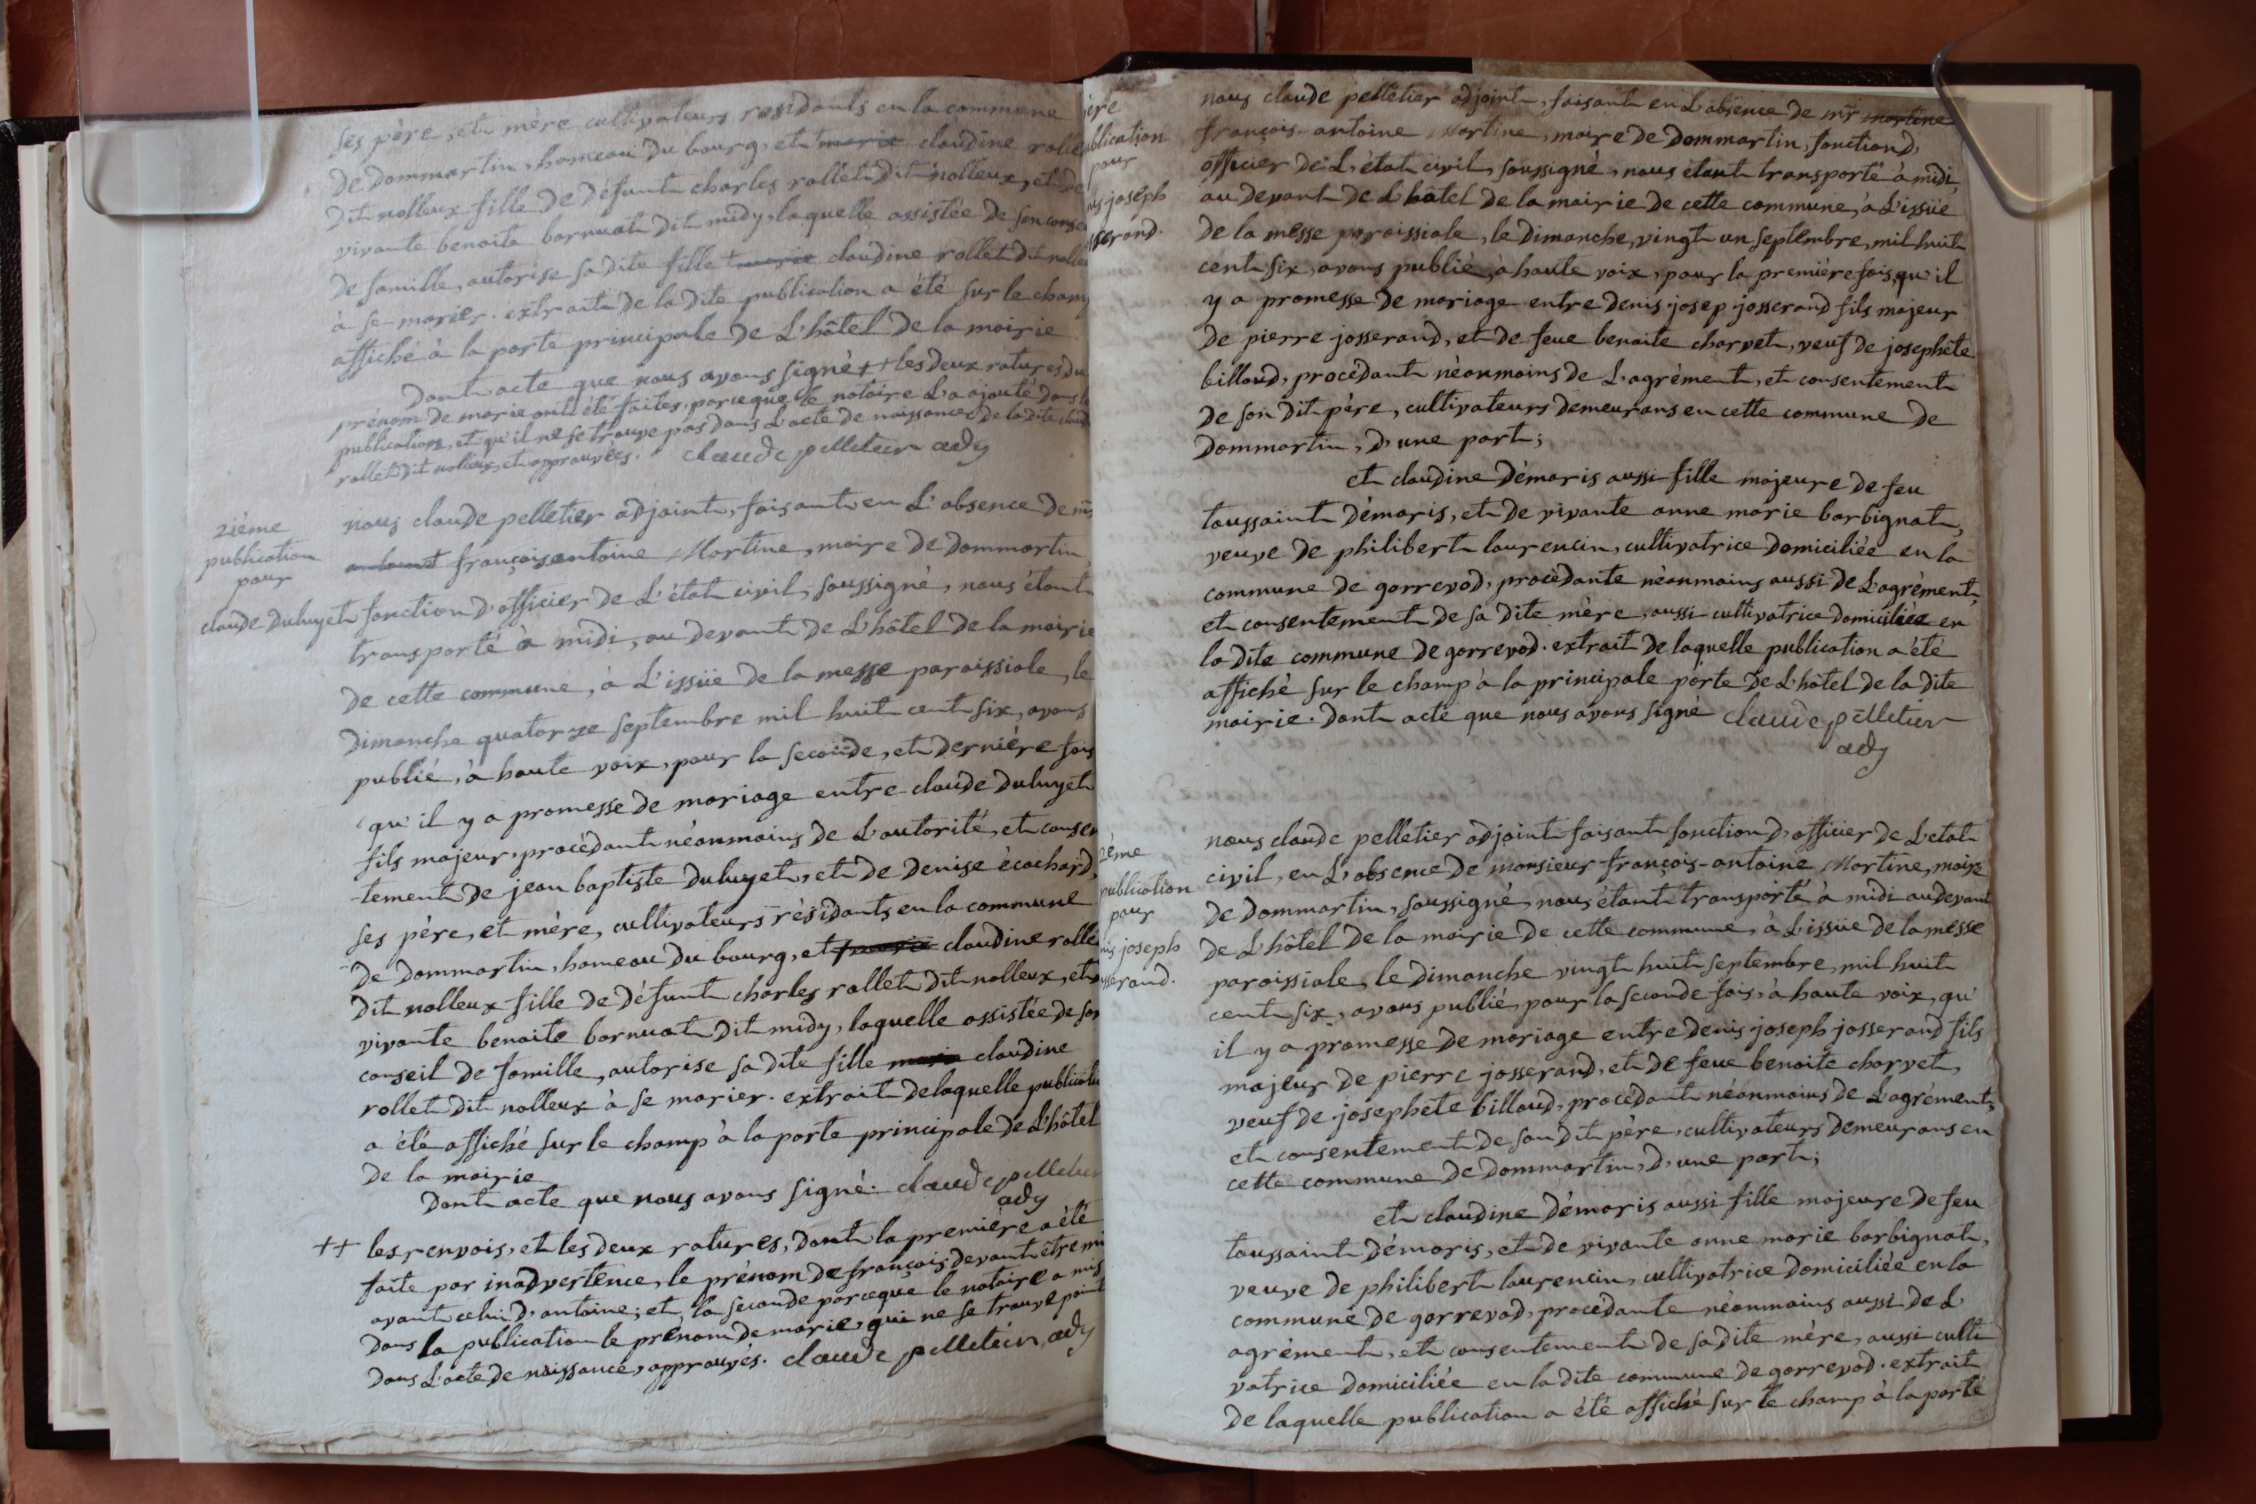 ses père, et mère cultivateurs residants en la commune
de dommartin, hameau du bourg, et marie claudine rollet
dit nolleux fille de défunt charles rollet dit nolleux, et de
vivante benoite bornuat dit midy, laquelle assistée de son conseil
de famille, autorise sa dite fille marie claudine rollet dit nolleux
à se marier. extrait de la dite publication a été sur le champ
affiché à la porte principale de L'hôtel de la mairie
Dont acte que nous avons signé ++ les deux ratures du
prénom de marie ont été faites, parceque le notaire L'a ajouté dans la
publication, et qu'il ne se trouve pas dans L'acte de naissance de la dite claudine
rollet dit nolleux, et approuvées. claude pelletier adj
2ième
publication
pour
claude duluyet
nous claude pelletier adjoint, faisant en L'absence de mr
antoine françois antoine Martine, maire de dommartin
fonction d'officier de L'état civil, soussigné, nous étant
transporté à midi, au devant de L'hôtel de la mairie
de cette commune, à L'issüe de la messe paroissiale, le
dimanche quatorze septembre mil huit cent six, avons
publié, à haute voix, pour la seconde, et dernière fois
qu'il y a promesse de mariage entre claude duluyet
fils majeur, procédant néanmoins de L'autorité, et consen
-tement de jean baptiste duluyet, et de denise écochard,
ses père, et mère, cultivateurs résidants en la commune
de dommartin, hameau du bourg, et marie claudine rollet
dit nolleux fille de défunt charles rollet dit nolleux, et de
vivante benoite bornuat dit midy, laquelle assistée de son
conseil de famille, autorise sa dite fille marie claudine
rollet dit nolleux à se marier. extrait de laquelle publication
a été affiché sur le champ à la porte principale de L'hôtel
de la mairie
Dont acte que nous avons signé. claude pelletier
adj
++ les renvois, et les deux ratures, dont la première a été
faite par inadvertence, le prénom de françois devant être mis
avant celui d'antoine; et la seconde parceque le notaire a mis
dans la publication le prénom de marie, qui ne se trouve point
dans L'acte de naissance, approuvés. claude pelletier, adj
ère
ublication
pour
nis joseph
sserand.
nous claude pelletier adjoint, faisant en L'absence de mr martine
françois-antoine Martine, maire de dommartin, fonction d'
officier de L'état civil, soussigné, nous étant transporté à midi,
au devant de L'hôtel de la mairie de cette commune, à L'issüe
de la messe paroissiale, le dimanche, vingt un septembre, mil huit
cent six, avons publié, à haute voix, pour la première fois, qu'il
y a promesse de mariage entre denis-josep josserand fils majeur
de pierre josserand, et de feue benoite charvet, veuf de josephete
billoud, procédant néanmoins de L'agrément, et consentement
de son dit père, cultivateurs demeurans en cette commune de
dommartin, d'une part;
et claudine démaris aussi fille majeure de feu
toussaint démaris, et de vivante anne marie barbignat,
veuve de philibert laurencin, cultivatrice domiciliée en la
commune de gorrevod, procédante néanmoins aussi de L'agrément,
et consentement de sa dite mère, aussi cultivatrice domiciliée en
la dite commune de gorrevod. extrait de laquelle publication a été
affiché sur le champ à la principale porte de L'hôtel de la dite
mairie. Dont acte que nous avons signé claude pelletier
adj
2ème
publication
pour
nis joseph
sserand.
nous claude pelletier adjoint faisant fonction d'officier de L'état
civil, en L'absence de monsieur françois-antoine Martine, maire
de dommartin, soussigné, nous étant transporté à midi au devant
de L'hôtel de la mairie de cette commune, à L'issüe de la messe
paroissiale, le dimanche vingt huit septembre, mil huit
cent six, avons publié, pour la seconde fois, à haute voix, qu'
il y a promesse de mariage entre denis-joseph josserand fils
majeur de pierre josserand, et de feue benoite charvet,
veuf de josephete billoud, procédant néanmoins de L'agrément,
et consentement de son dit père, cultivateurs demeurans en
cette commune de dommartin, d'une part;
et claudine démaris aussi fille majeure de feu
toussaint démaris, et de vivante anne marie barbignat,
veuve de philibert laurencin, cultivatrice domiciliée en la
commune de gorrevod, procédante néanmoins aussi de L'
agrément, et consentement de sa dite mère, aussi culti
vatrice domiciliée en la dite commune de gorrevod. extrait
de laquelle publication a été affiché sur le champ à la porte